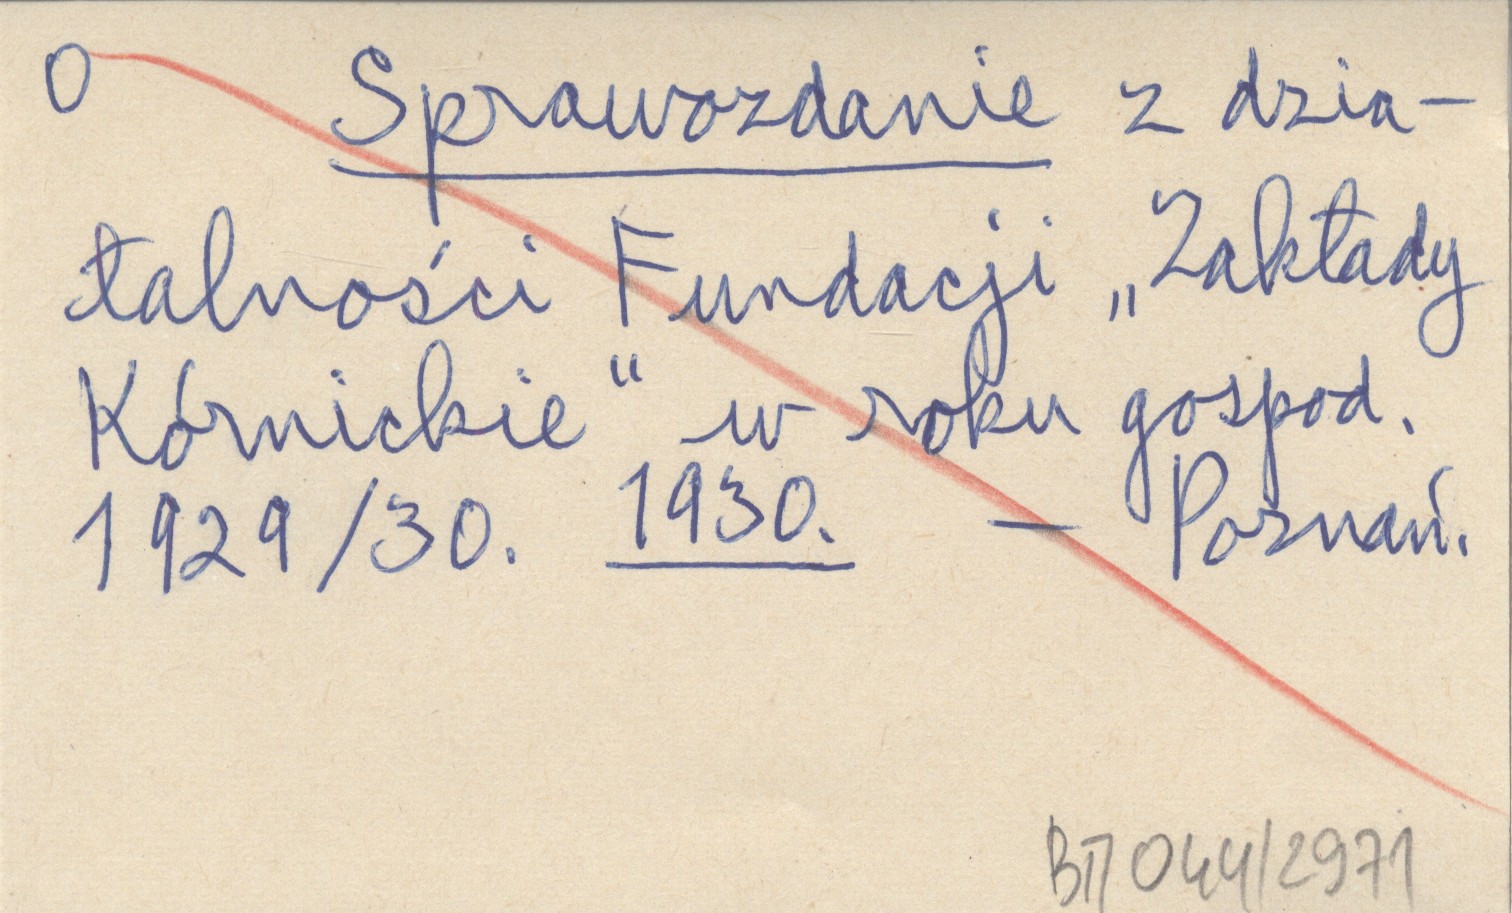 O Sprawozdanie z dzia-
łalności Fundacji „Zakłady
Kórnickie“ w roku gospod.
1929/30. 1930. — Poznań.
BП 044/2971